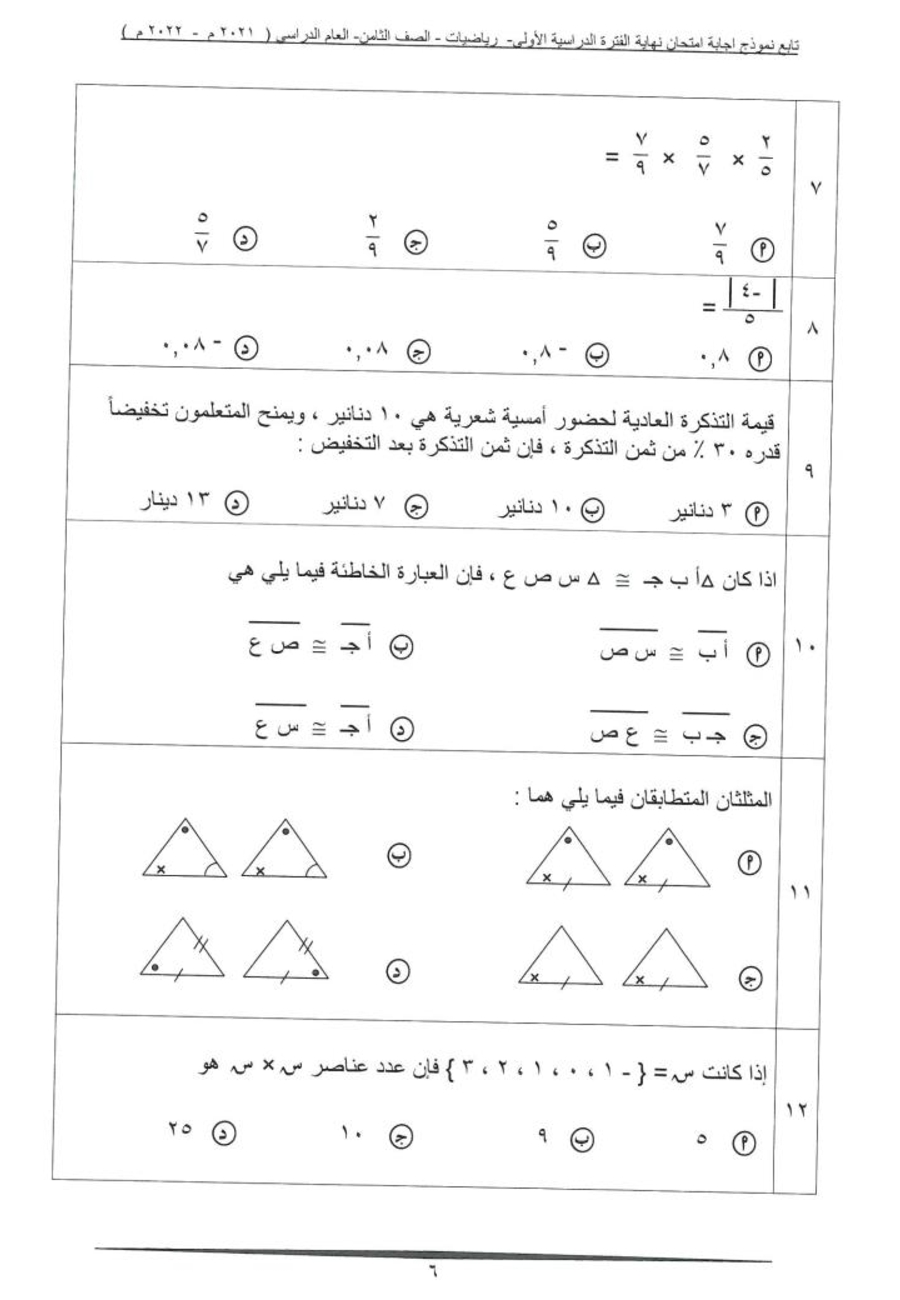 تابع نموذج اجابة امتحان نهاية الفترة الدراسية الأولى- رياضيات - الصف الثامن- العام الدراسي ( ٢٠٢١ م - ٢٠٢٢ م )
٧
٢/٥ × ٥/٧ × ٧/٩ =
أ ٧/٩ ب ٥/٩ ج ٢/٩ د ٥/٧
٨
|-٤|/٥ =
أ ٠,٨ ب -٠,٨ ج ٠,٠٨ د -٠,٠٨
٩
قيمة التذكرة العادية لحضور أمسية شعرية هي ١٠ دنانير ، ويمنح المتعلمون تخفيضاً
قدره ٣٠ ٪ من ثمن التذكرة ، فإن ثمن التذكرة بعد التخفيض :
أ ٣ دنانير ب ١٠ دنانير ج ٧ دنانير د ١٣ دينار
١٠
اذا كان △أ ب جـ ≅ △ س ص ع ، فإن العبارة الخاطئة فيما يلي هي
أ أ ب ≅ س ص ب أ جـ ≅ ص ع
ج جـ ب ≅ ع ص د أ جـ ≅ س ع
١١
المثلثان المتطابقان فيما يلي هما :
أ ب
ج د
١٢
إذا كانت س = { -١ ، ٠ ، ١ ، ٢ ، ٣ } فإن عدد عناصر س × س هو
أ ٥ ب ٩ ج ١٠ د ٢٥
٦